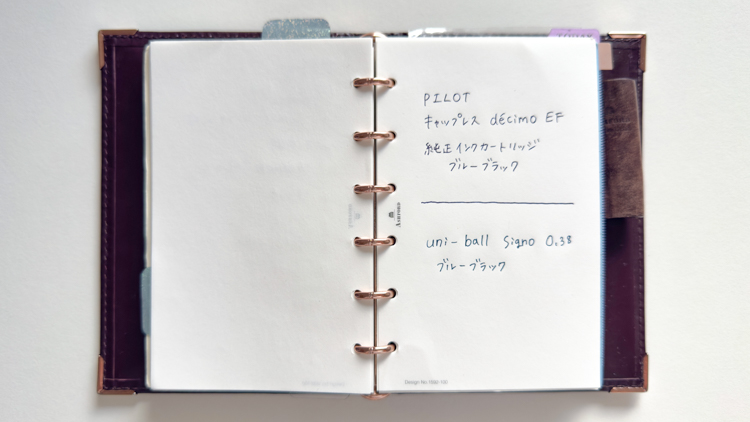 PILOT
キャップレス décimo EF
純正インクカートリッジ
ブルーブラック
uni-ball Signo 0.38
ブルーブラック
ASHFORD